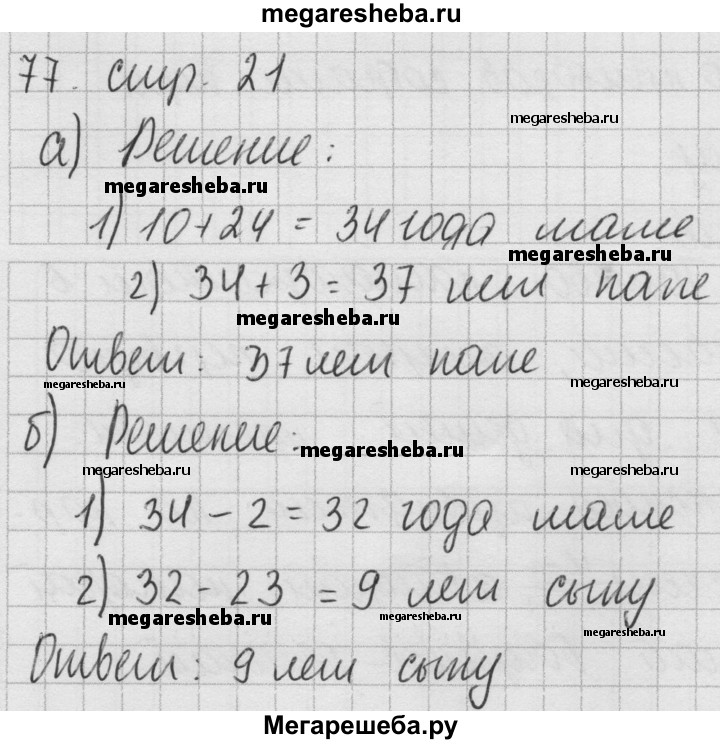 megaresheba.ru
77. стр. 21
megaresheba.ru
а) Решение:
megaresheba.ru
1) 10+24 = 34 года маме
megaresheba.ru
2) 34+3=37 лет папе
megaresheba.ru
Ответ: 37 лет папе
megaresheba.ru
megaresheba.ru
б) Решение:
megaresheba.ru
megaresheba.ru
megaresheba.ru
1) 34-2=32 года маме
2) 32-23 =9 лет сыну
megaresheba.ru
megaresheba.ru
megaresheba.ru
Ответ: 9 лет сыну
Мегарешеба.ру